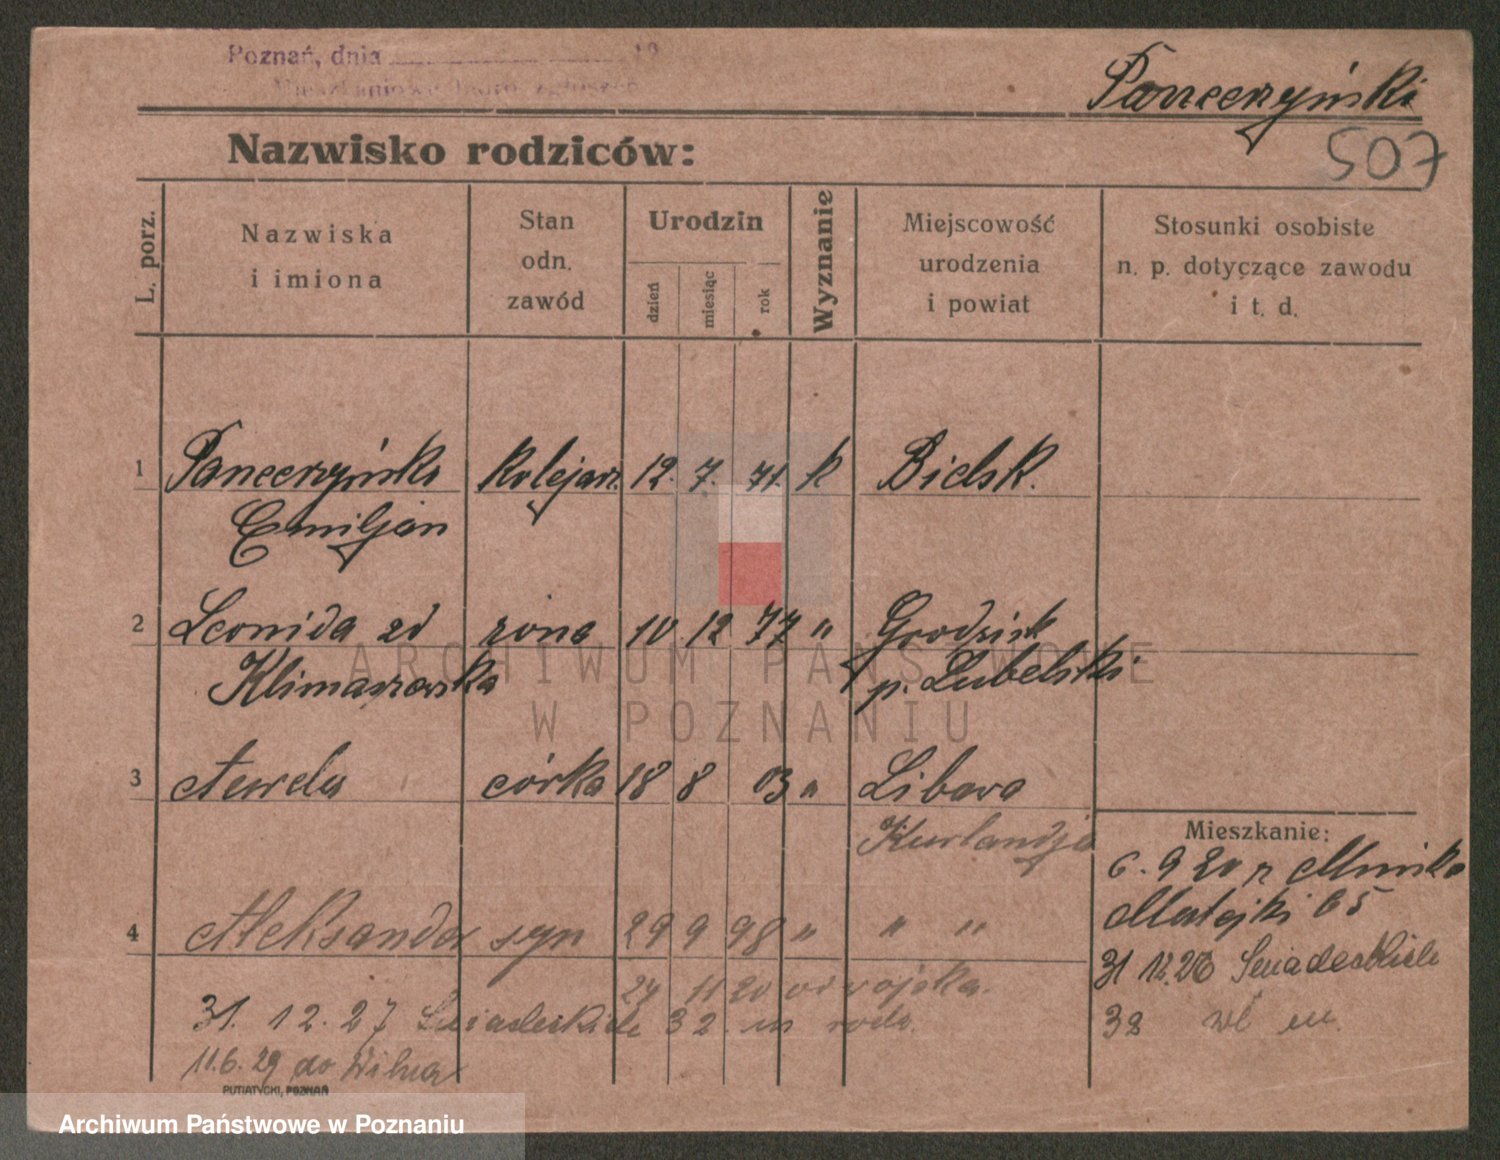 Poznań, dnia 19
Pancerzyński
507
Nazwisko rodziców:
L. porz.
Nazwiska
i imiona
Stan
odn.
zawód
Urodzin
dzień
miesiąc
rok
Wyznanie
Miejscowość
urodzenia
i powiat
Stosunki osobiste
n. p. dotyczące zawodu
i t. d.
1 Pancerzyński kolejarz. 12. 7. 71. k Bielsk.
Emiljan
2 Leonida zd żona 10 12 77 " Grodzisk
Klimaszewska p. Lubelski
3 córka 18 8 03 " Libawa
Kurlandja
Mieszkanie:
6. 9 20 z
Matejki 65
4 Aleksander syn 29 9 98 " " "
31 12.26 Śniadeckich
24 11 20 od wojska.
31. 12. 27 Śniadeckich 32 m rodz.
32 wł m.
11.6.29 do Wilna
PUTIATYCKI, POZNAŃ
ARCHIWUM PAŃSTWOWE
W POZNANIU
Archiwum Państwowe w Poznaniu